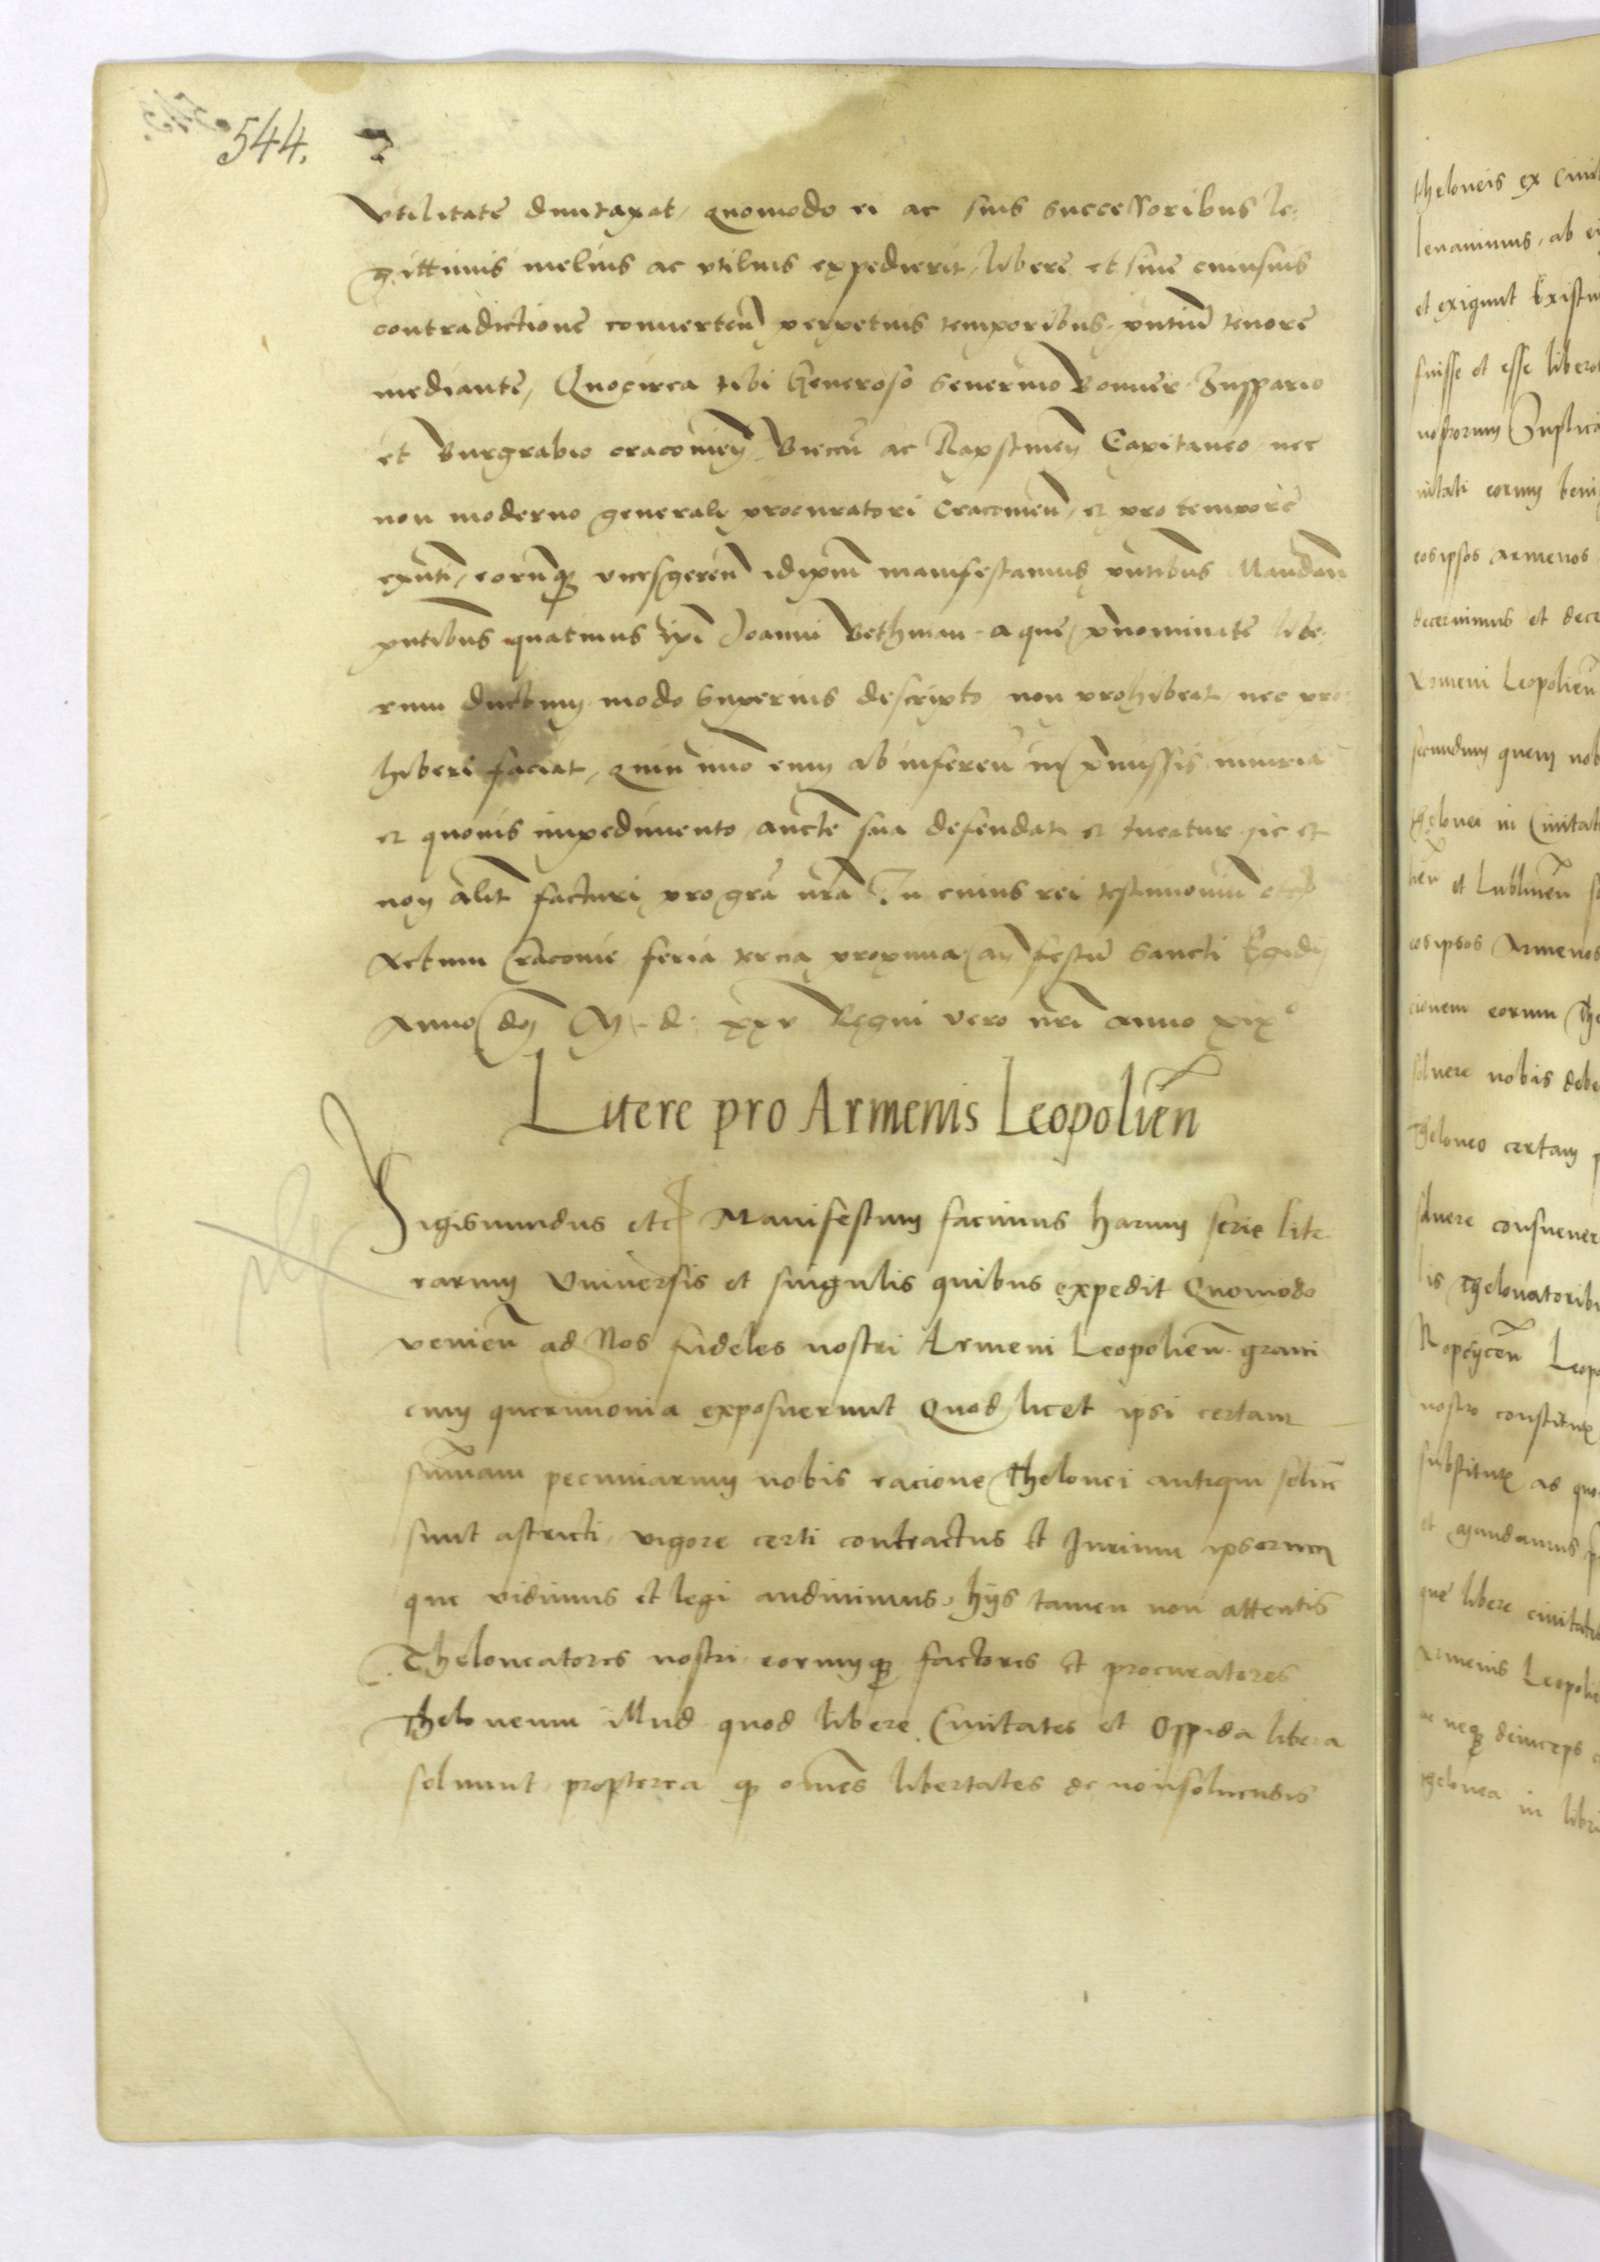 544.
vtilitatē duntaxat, quomodo ei ac suis successoribus le-
gittimis melius ac vtilius expedierit, libere et sine cuiusuis
contradictione conuerteñ perpetuis temporibus, pñtiũ tenore
mediante, Quocirca tibi Generoso Seuerino Bonner Zuppario
et Burgrabio cracouień Biecẽ ac Rapstineñ Capitaneo nec
non moderno generali procuratori Cracouień, et pro tempore
exñti, eorũq vicesgereñ id ipm manifestamus pñtibus Mandañ
pñtibus quatinus ipi Joanni Bethman aque pñominate libe-
rum ductum modo superius descripto non prohibeat nec pro
hiberi faciat, quin imo eum ab infereñ in pmissis iniuria
et quouis impedimento aucte sua defendat et tueatur sic et
non alit facturi pro gra nra In cuius rei testimonium etc
Actum Cracouie feria tercia proxima añ festũ Sancti Egidij
Anno dñ M d xxv Regni vero nri anno xixº
Litere pro Armenis Leopolień
Sigismundus etc Manifestum facimus harum serie lite-
rarum Vniuersis et singulis quibus expedit Quomodo
venień ad Nos fideles nostri Armeni Leopolień graui
cum querimonia exposuerunt Quod licet ipsi certam
summam pecuniarum nobis racione Thelonei antiqui soluē
sunt astricti, vigore certi contractus et Jurium ipsorum
que vidimus et legi audiuimus, hijs tamen non attentis
Theloneatores nostri eorumq factores et procuratores
Theloneum illud quod libere Ciuitates et Oppida libera
soluunt propterea q omēs libertates de nonsoluendis
theloneis ex Ciuit
leuauimus, ab ei
et exigunt Existu
fuisse et esse libero
nostrorum Suplica
nitati eorum beni
eos ipsos Armenos
decernimus et dece
Armeni Leopolień
secundum quem nob
thelonei in Ciuitat
et Lublineñ
eos ipsos Armenos
cionem eorum The
soluere nobis debe
Theloneo certam p
soluere consueuer
lis Thelonatoribu
Ropcyceñ Leopo
nostro constitut
substitut ad quo
et mandamus
que libere ciuitates
Armenis Leopolie
ac neq deinceps
thelonea in libri